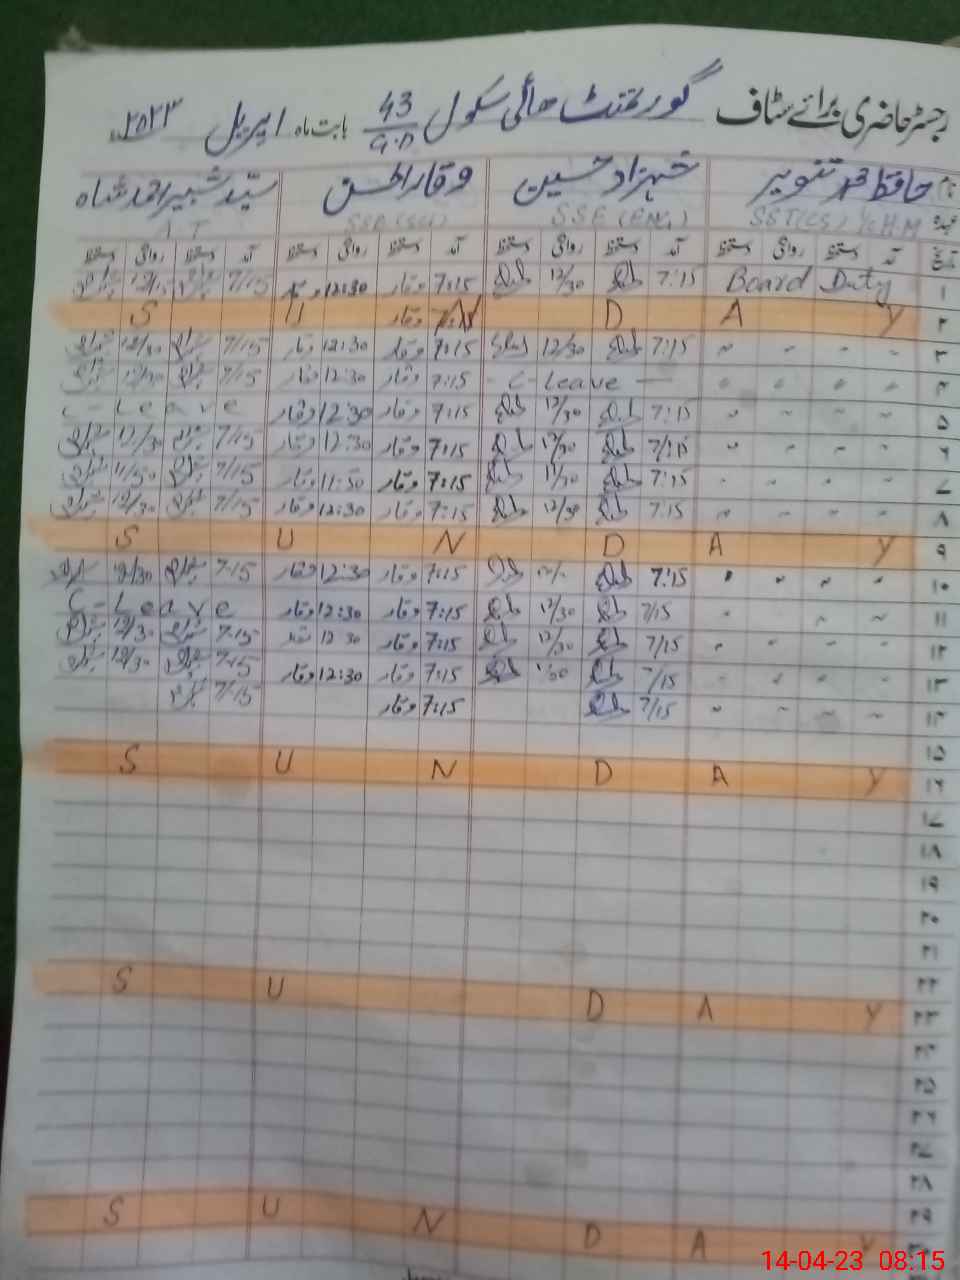 رجسٹر حاضری برائے سٹاف گورنمنٹ ہائی سکول 43/G.D بابت ماہ اپریل ۲۰۲۳
نام حافظ محمد تنویر شہزاد حسین وقار الحسن سید شبیر احمد شاہ
عہدہ SST(CS) I/C H.M SSE (ENG) SSE (SCI) A T
تاریخ آمد دستخط روانگی دستخط آمد دستخط روانگی دستخط آمد دستخط روانگی دستخط آمد دستخط روانگی دستخط
۱ Board Duty 7:15 12/30 7:15 وقار 12:30 وقار 7/15
۲ S U N D A Y وقار
۳ 〃 〃 〃 〃 7:15 12/30 7:15 وقار 12:30 وقار 7/15 12/30
۴ 〃 〃 〃 〃 - C-Leave - 7:15 وقار 12:30 وقار 7/15 12/30
۵ 〃 〃 〃 〃 7:15 12/30 7:15 وقار 12:30 وقار C-Leave
۶ 〃 〃 〃 〃 7/15 12/30 7:15 وقار 12:30 وقار 7/15 12/30
۷ 〃 〃 〃 〃 7:15 11/30 7:15 وقار 11:50 وقار 7/15 11/50
۸ 〃 〃 〃 〃 7:15 12/30 7:15 وقار 12:30 وقار 7/15 12/30
۹ S U N D A Y
۱۰ 〃 〃 〃 〃 7:15 7:15 وقار 12:30 وقار 7:15 12/30
۱۱ 〃 〃 〃 7/15 12/30 7:15 وقار 12:30 وقار C-Leave
۱۲ 〃 〃 〃 〃 7/15 12/30 7:15 وقار 12:30 7:15 12/30
۱۳ 〃 〃 〃 〃 7/15 7:15 وقار 12:30 وقار 7:15 12/30
۱۴ 〃 〃 〃 〃 7/15 7:15 وقار 7/15
۱۵
۱۶ S U N D A Y
۱۷
۱۸
۱۹
۲۰
۲۱
۲۲
۲۳ S U D A Y
۲۴
۲۵
۲۶
۲۷
۲۸
۲۹
۳۰ S U N D A Y
14-04-23 08:15